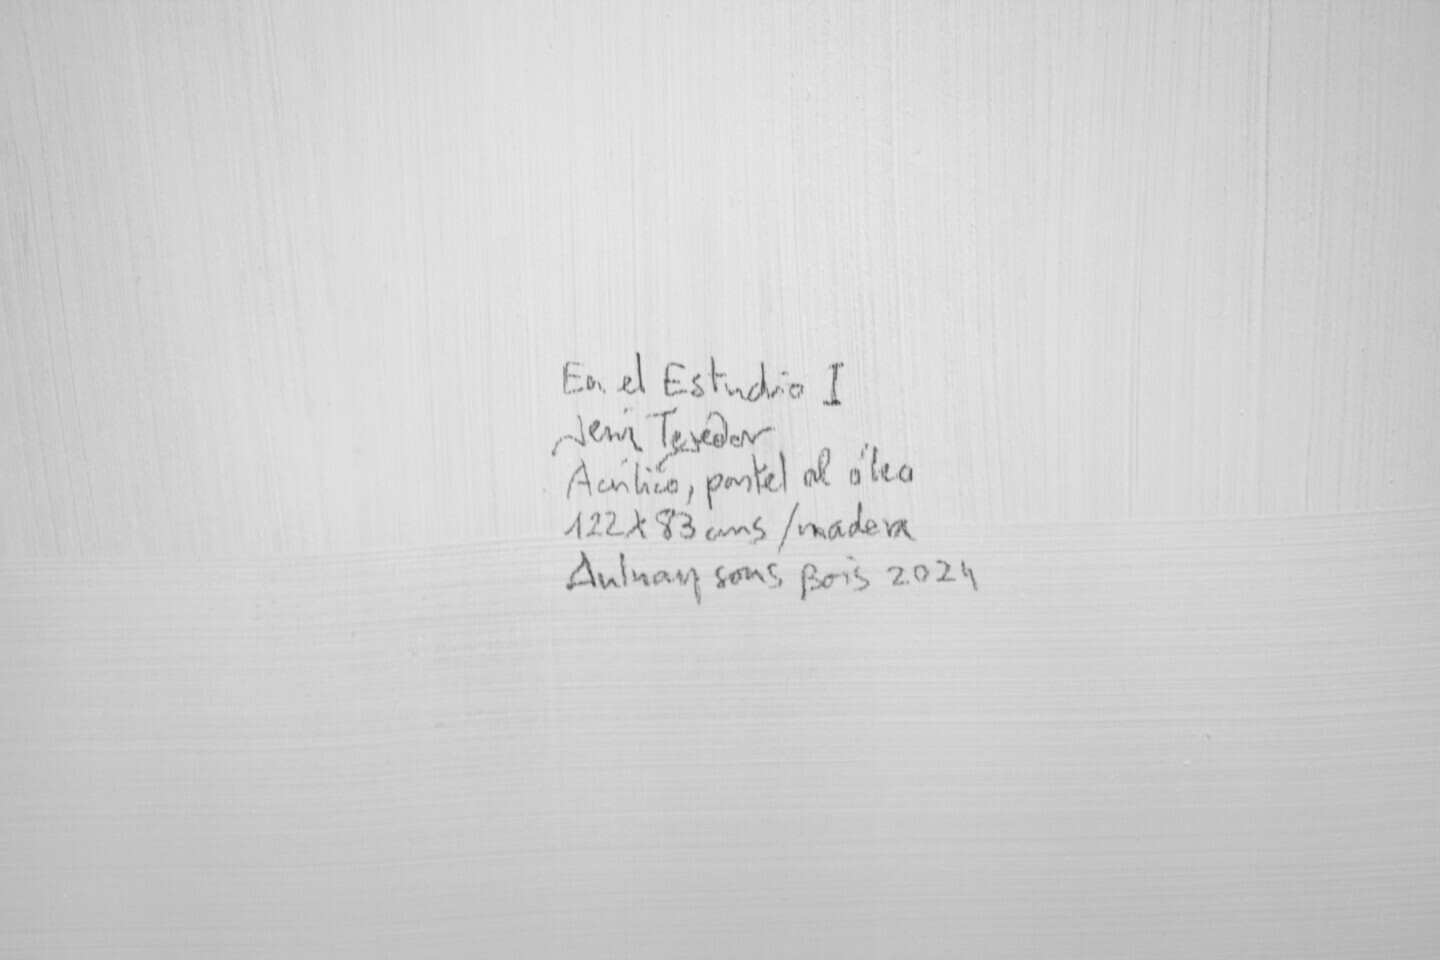 En el Estudio I
Tejedor
Acrílico, pastel al óleo
122 x 83 cms / madera
Aulnay sous Bois 2024